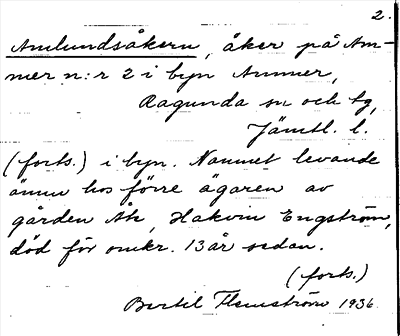 2.
Amlundsåkern, åker på Am-
mer n:r 2 i byn Ammer,
Ragunda sn och tg,
Jämtl. l.
(forts.) i byn. Namnet levande
ännu hos förre ägaren av
gården Åk, Hakvin Engström,
död för omkr. 13 år sedan.
(forts.)
Bertil Flemström 1936.